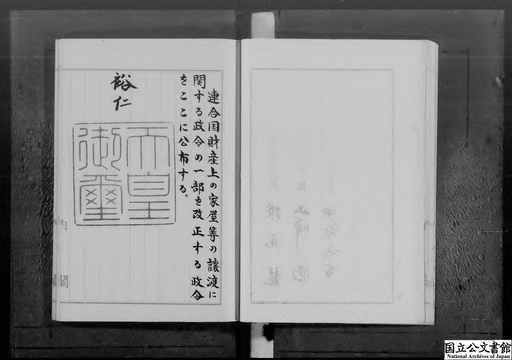 連合国財産上の家屋等の譲渡に
関する政令の一部を改正する政令
をここに公布する。
裕仁
天皇
御璽
内閣
国立公文書館
National Archives of Japan